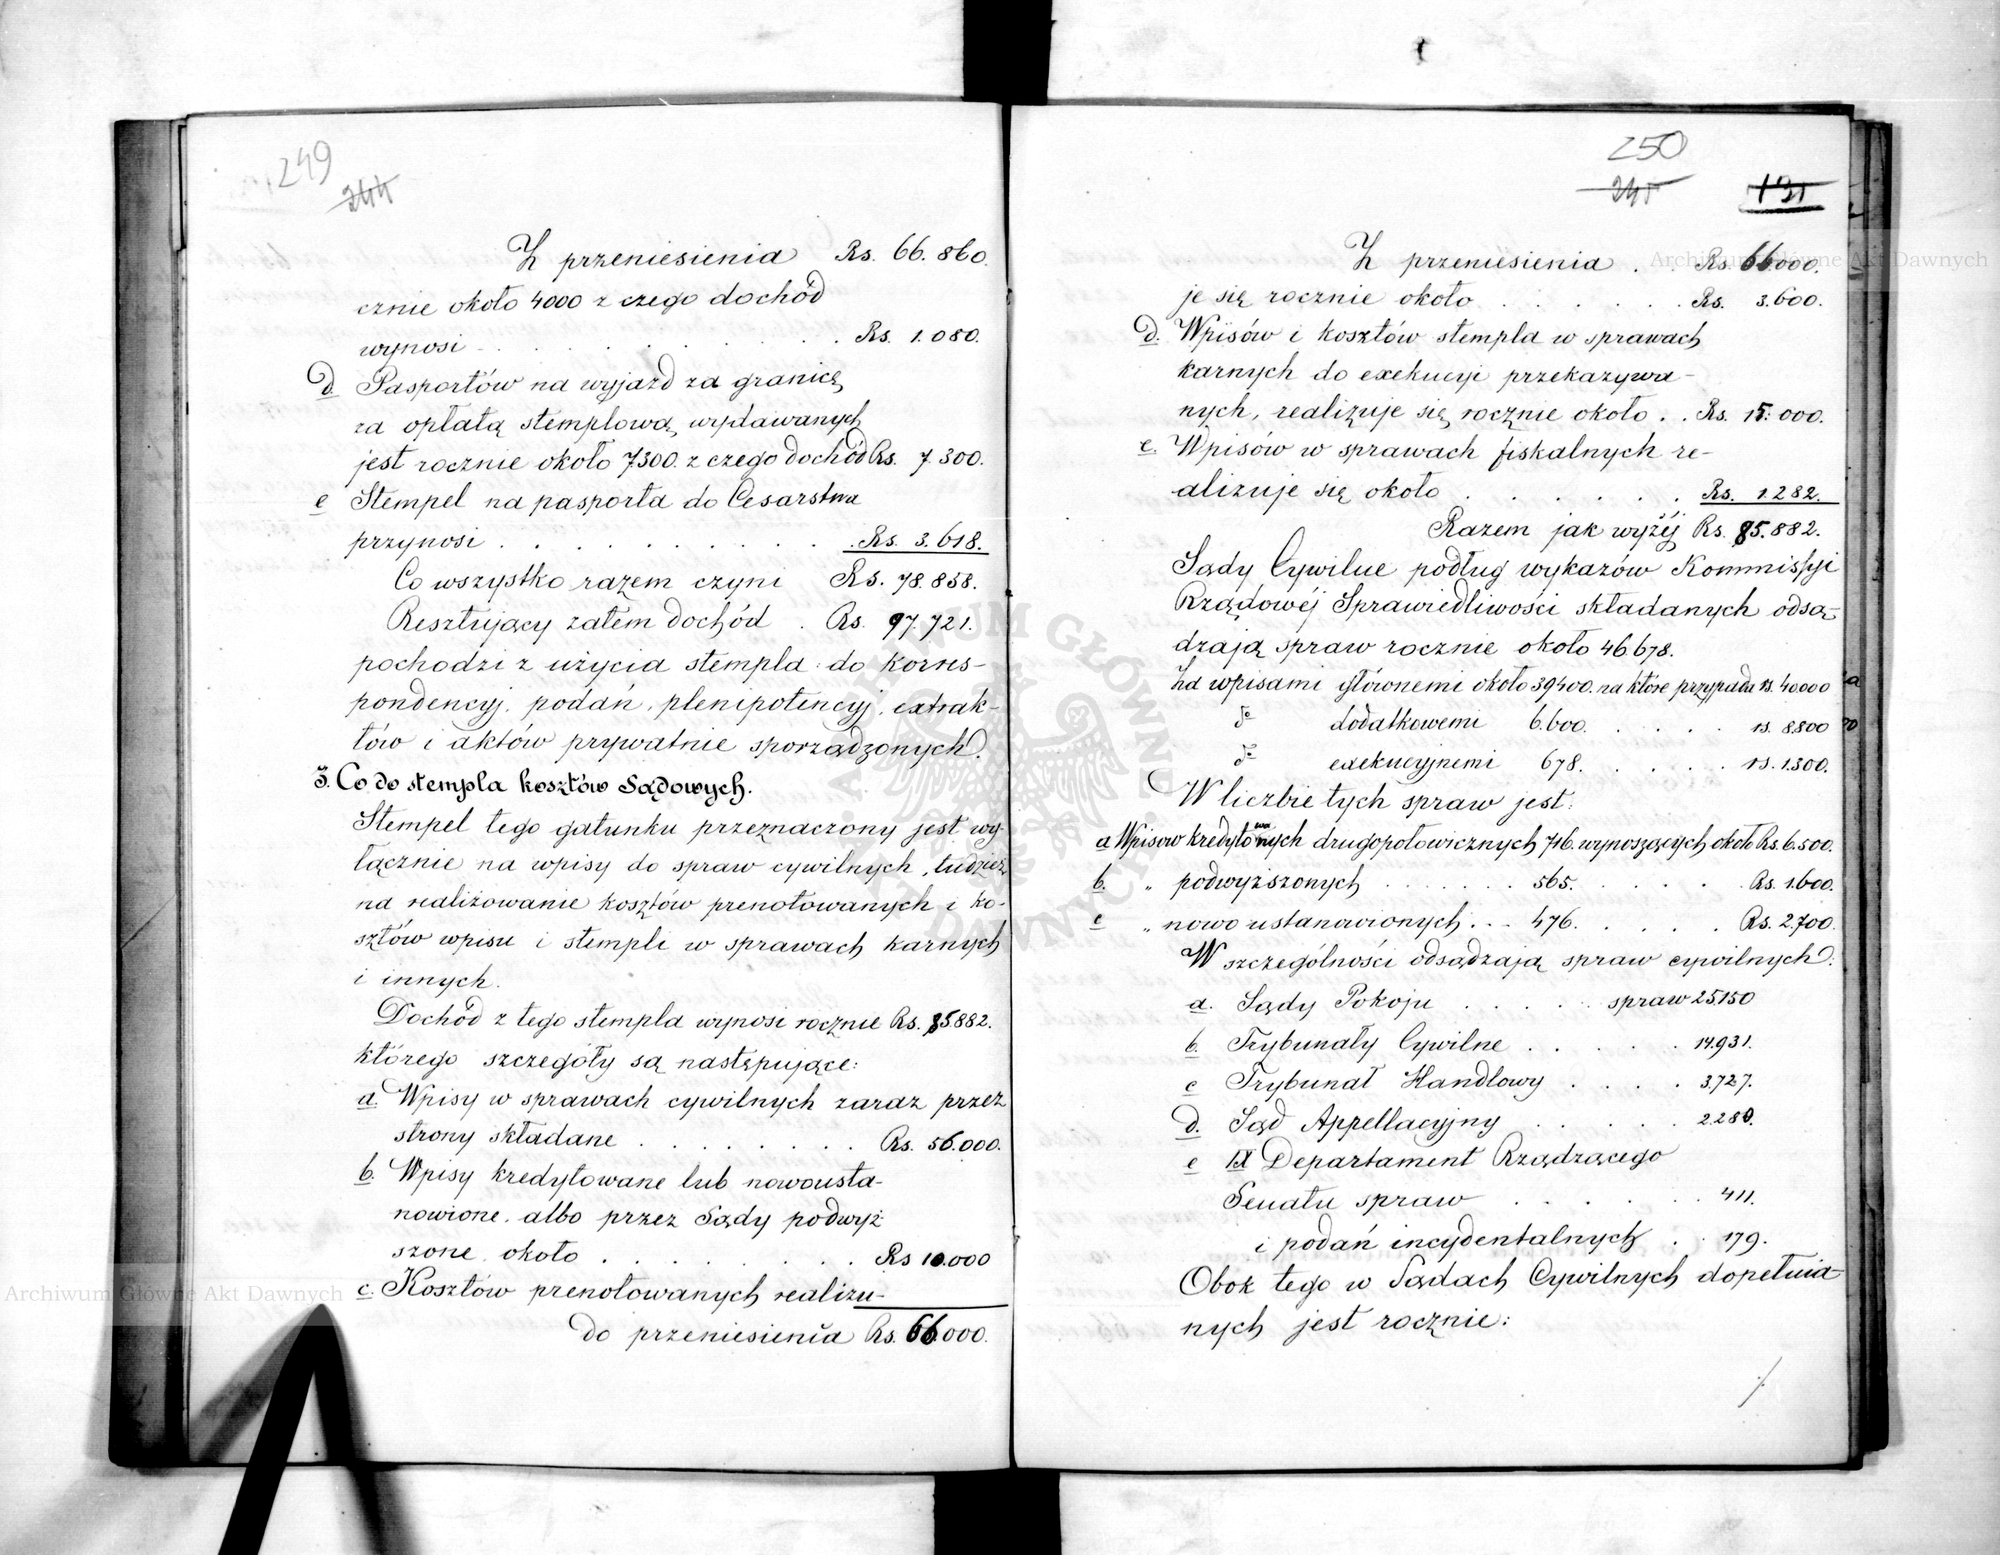 249
244
Z przeniesienia Rs. 66.860.
cznie około 4000 z czego dochód
wynosi . . . . . . . . . . Rs. 1.080.
d. Pasportów na wyjazd za granicę,
za opłatą stemplową wydawanych
jest rocznie około 7300. z czego dochód Rs. 7.300.
e Stempel na pasporta do Cesarstwa
przynosi . . . . . . . . . . Rs. 3.618.
Co wszystko razem czyni Rs. 78.858.
Resztujący zatem dochód . Rs. 97.721.
pochodzi z użycia stempla do korres-
pondencyj, podań, plenipotencyj, extrak-
tów i aktów prywatnie sporządzonych.
3. Co do stempla kosztów Sądowych.
Stempel tego gatunku przeznaczony jest wy-
łącznie na wpisy do spraw cywilnych, tudzież
na realizowanie kosztów prenotowanych i ko-
sztów wpisu i stempli w sprawach karnych
i innych.
Dochód z tego stempla wynosi rocznie Rs. 85.882.
którego szczegóły są następujące:
a. Wpisy w sprawach cywilnych zaraz przez
strony składane . . . . . . . . Rs. 56.000.
b. Wpisy kredytowane lub nowousta-
nowione, albo przez Sądy podwyż-
szone, około . . . . . . . . Rs 10.000
c. Kosztów prenotowanych realizu-
do przeniesienia Rs. 66.000.
250
245
131
Z przeniesienia . . Rs. 66.000.
je się rocznie około . . . . . . Rs. 3.600.
d. Wpisów i kosztów stempla w sprawach
karnych do exekucyi przekazywa-
nych, realizuje się rocznie około . . Rs. 15.000.
e. Wpisów w sprawach fiskalnych re-
alizuje się około . . . . . . Rs. 1.282.
Razem jak wyżéj Rs. 85.882.
Sądy Cywilne podług wykazów Kommissyi
Rządowéj Sprawiedliwości składanych odsą-
dzają spraw rocznie około 46.678.
Za wpisami głównemi około 39400. na które przypada rs. 40.000
do dodatkowemi 6.600. . . . . . rs. 8.800
do exekucyjnemi 678. . . . . . rs. 1.300.
W liczbie tych spraw jest:
a Wpisow kredytowanych drugopołowicznych 716. wynoszących około Rs. 6.500.
b. " podwyższonych . . . . . . 565. . . . . . Rs. 1.600.
c " nowo ustanowionych . . . 476. . . . . . Rs. 2.700.
W szczególności odsądzają spraw cywilnych:
a. Sądy Pokoju . . . . . spraw 25.150
b. Trybunały Cywilne . . . . . 14.931.
c Trybunał Handlowy . . . . 3.727.
d. Sąd Appellacyjny . . . . . 2.280.
e IX Departament Rządzącego
Senatu spraw . . . . . . 411.
i podań incydentalnych . . 179.
Obok tego w Sądach Cywilnych dopełnia-
nych jest rocznie:
Archiwum Główne Akt Dawnych
Archiwum Główne Akt Dawnych
ARCHIWUM GŁÓWNE AKT DAWNYCH